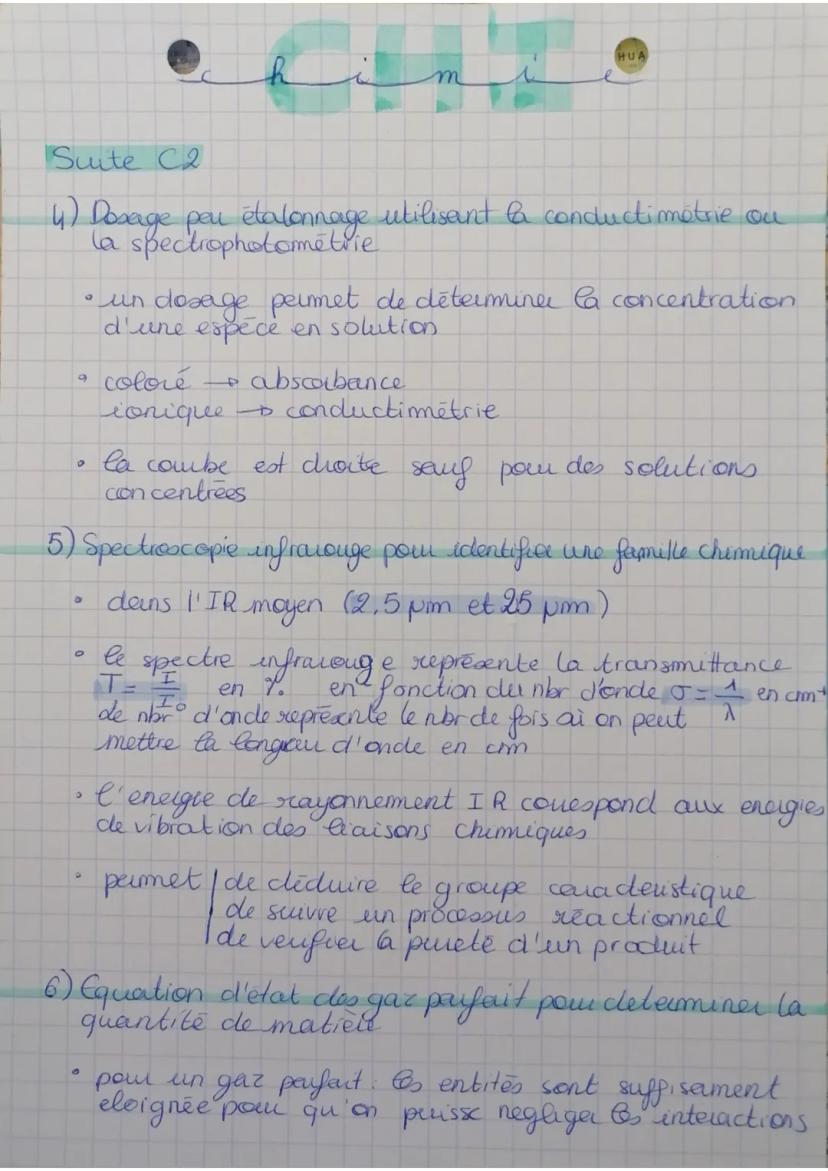 CHI
chimie
HUA
Suite C2
4) Dosage par étalonnage utilisant la conductimétrie ou
la spectrophotométrie
• un dosage permet de déterminer la concentration
d'une espèce en solution
• coloré → absorbance
ionique → conductimétrie
• la courbe est droite sauf pour des solutions
concentrées
5) Spectroscopie infrarouge pour identifier une famille chimique
• dans l'IR moyen (2,5 µm et 25 µm)
• le spectre infrarouge représente la transmittance
T = I/I° en % en fonction du nbr d'onde σ = 1/λ en cm⁻¹
de nbr d'onde représente le nbr de fois où on peut
mettre la longueur d'onde en cm
• l'energie de rayonnement IR correspond aux energies
de vibration des liaisons chimiques
• permet | de déduire le groupe caractéristique
de suivre un processus réactionnel
de verifier la pureté d'un produit
6) Equation d'état des gaz parfait pour determiner la
quantité de matière
• pour un gaz parfait. les entités sont suffisament
eloignée pour qu'on puisse negliger les interactions